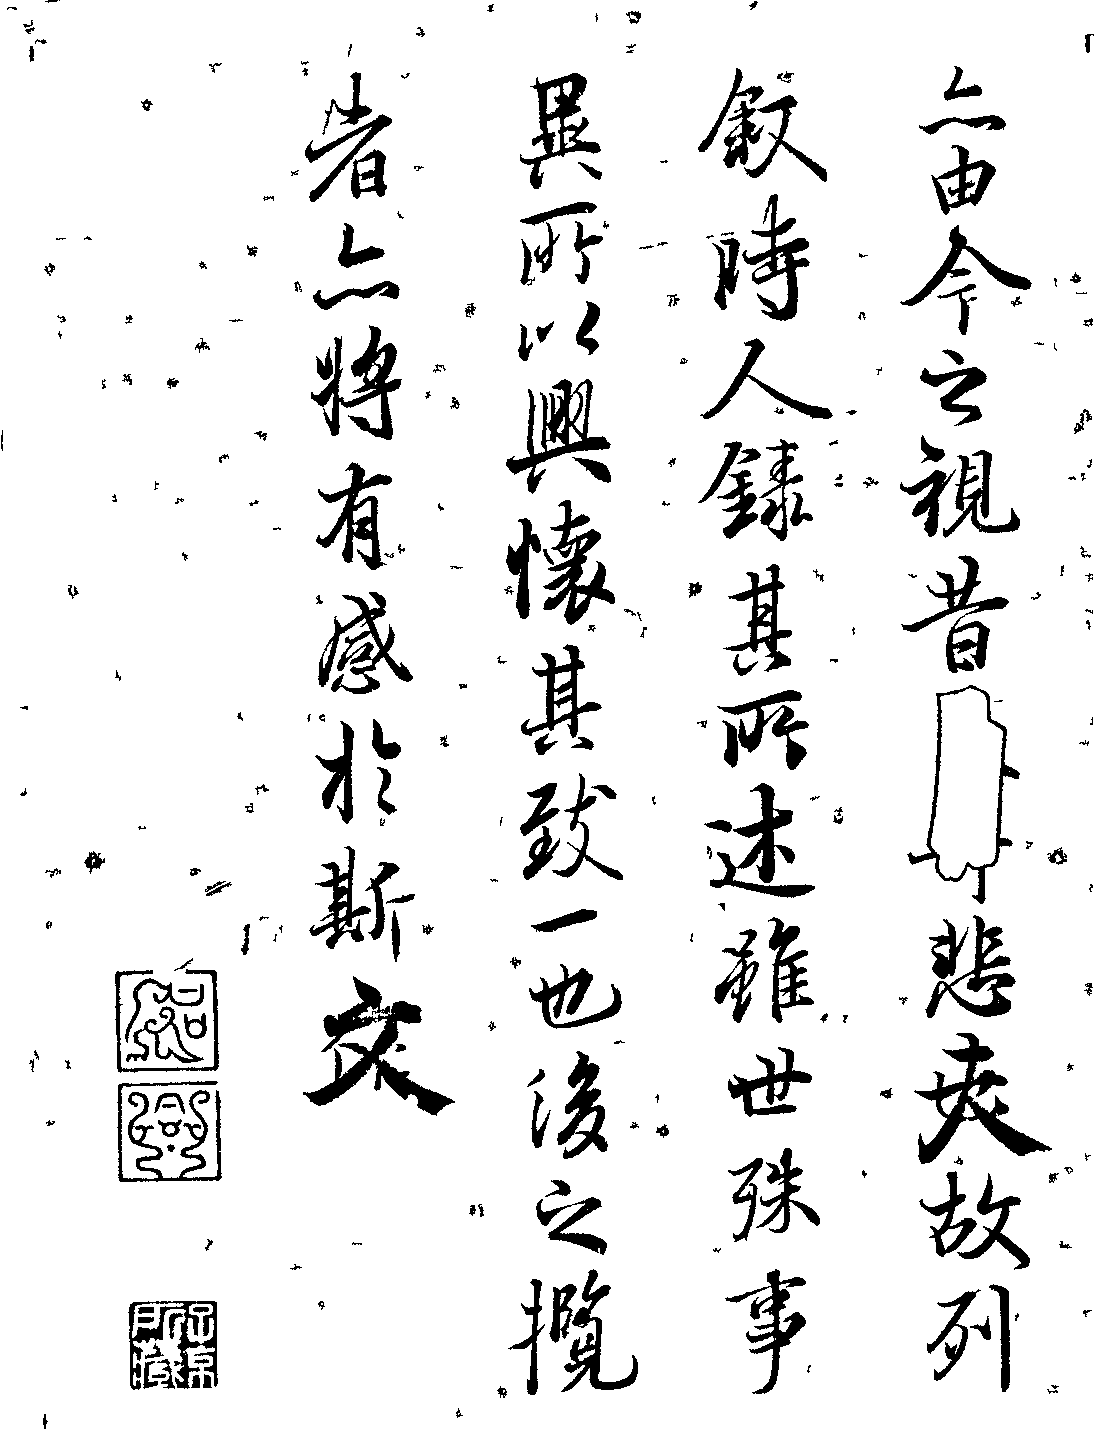 亦由今之視昔悲夫故列
敘時人錄其所述雖世殊事
異所以興懷其致一也後之攬
者亦將有感於斯文
紹
興
子京
所藏